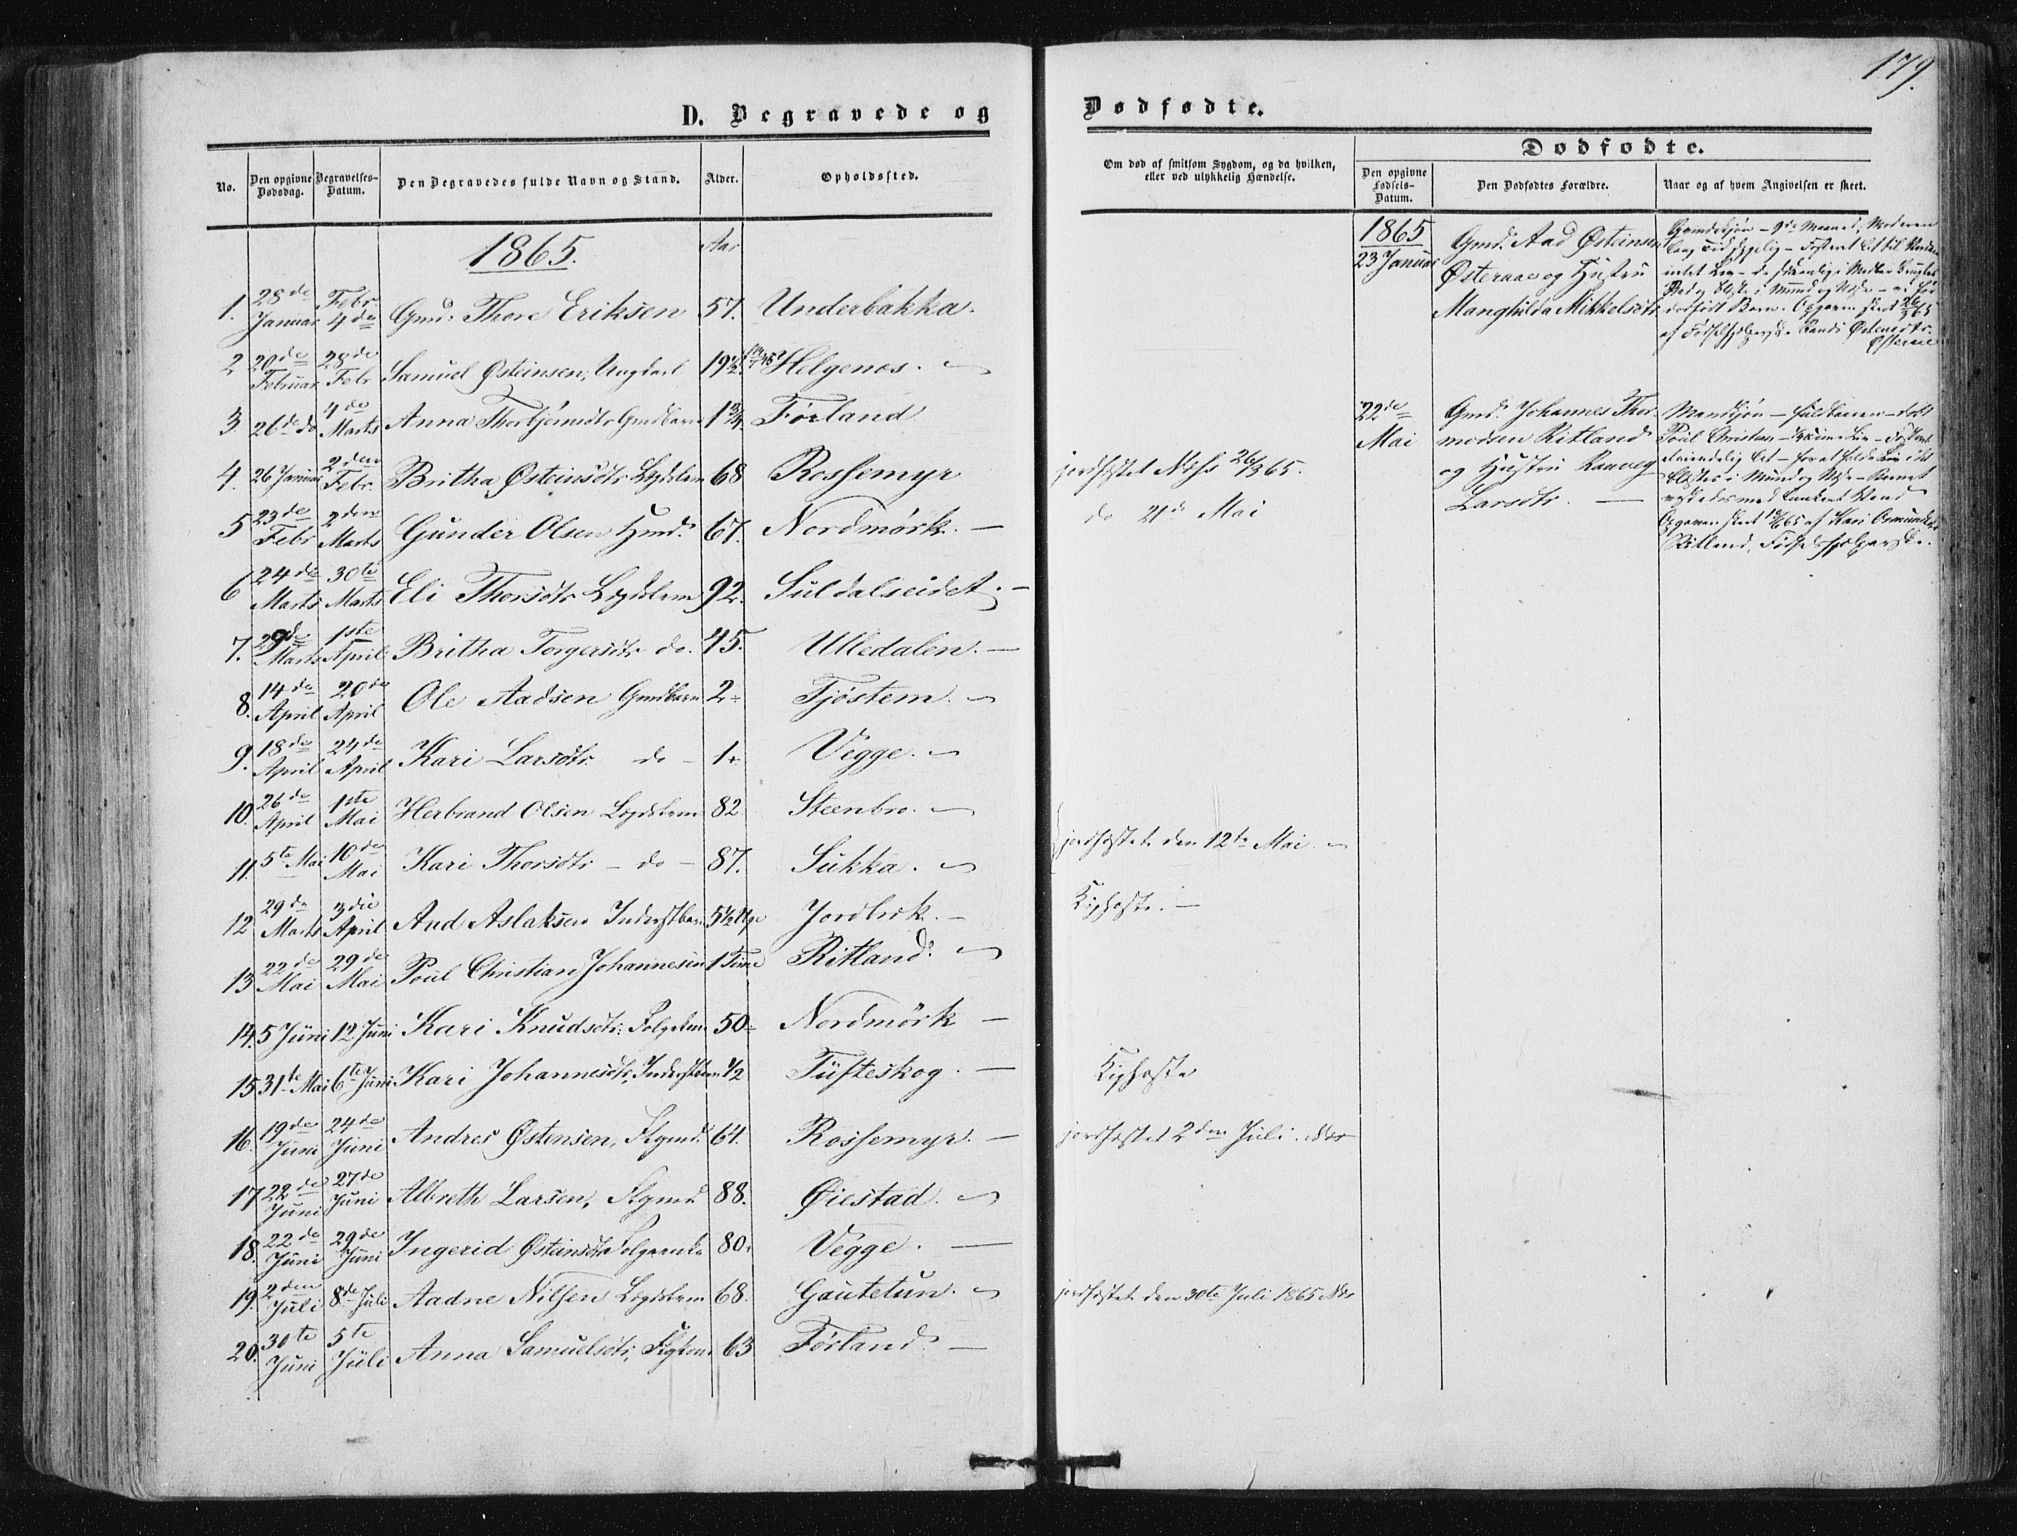 179.
D. Begravede og Dødfødte.
No.
Den opgivne Dødsdag.
Begravelses-Datum.
Den Begravedes fulde Navn og Stand.
Alder.
Opholdssted.
Om død af smitsom Sygdom, og da hvilken,
eller ved ulykkelig Hændelse.
Dødfødte.
Den opgivne Fødsels-Datum.
Den Dødfødtes Forældre.
Naar og af hvem Angivelsen er skeet.
1865. Aar
1. 28de Januar Febr. 4de Gmd. Thore Eriksen 57. Underbakka.
2 20de Februar 28de Febr Samuel Østeinsen, Ungkarl 19½ Helgenæs.
3. 26de do 4de Marts Anna Thorbjørnsdtr Gmdbarn 1¾ Førland
4. 26 Januar 2den Febr. Britha Østeinsdtr Lægdslem 68 Rossemyr jordfæstet Næss 26/3 65.
5 23de Febr 2den Marts Gunder Olsen Hmd. 67. Nordmørk. — do 21de Mai
6 24de Marts 30te Marts Eli Thorsdtr Lægdslem 92. Suldalseidet. —
7. 29de Marts 1ste April Britha Torgersdtr do. 45. Ulledalen. —
8. 14de April 20de April Ole Aadsen Gmdbarn 2 Tjøstem.
9. 18de April 24de April Kari Larsdtr do — 1 Vegge.
10. 26de April 1ste Mai Herbrand Olsen Lægdslem 82 Steenbro.
11. 5te Mai 10de Mai Kari Thorsdtr — do — 87. Sukka. jordfæstet den 12te Mai.
12 29de Marts 3die April Aad Aslaksen Inderstbarn 5½ Uge Jordbrk. — Kighoste. —
13 22de Mai 29de Mai Poul Christian Johannesen 1 Time Ritland.
14. 5 Juni 12 Juni Kari Knudsdtr. 50 Nordmørk —
15 31te Mai 6te Juni Kari Johannesdtr, Inderstbarn ½ Tufteskog. — Kighoste
16. 19de Juni 24de Juni Andres Østensen, Flgmd. 64. Rossemyr. — jordfæstet 2den Juli. Næs
17 22de Juni 27de Juni Albreth Larsen, Flgmd 88. Øiestad.
18. 22de Juni 29de Juni Ingerid Østeinsdtr 80. Vegge. —
19. 2den Juli 8de Juli Aadne Nilsen Lægdslem 68. Gautetun. jordfæstet den 30te Juli 1865 Næs
20. 30te Juni 5te Juli Anna Samuelsdtr, Flgkone 63 Førland —
1865
23 Januar
Gmd. Aad Østeinsen
Østeraae og Hustru
Manghilda Mikkelsdtr
22de Mai
Gmd. Johannes Thor-
modsen Ritland
og Hustru Ranveg
Larsdtr. —